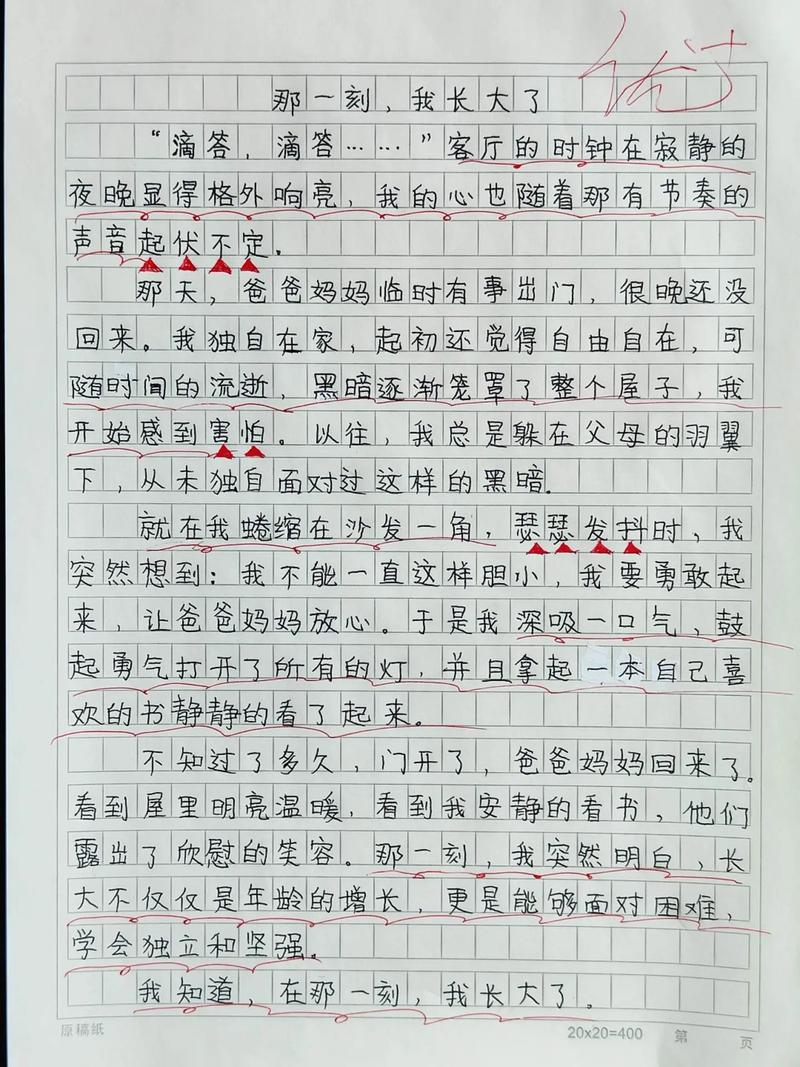 优+
那一刻，我长大了
“滴答，滴答……”客厅的时钟在寂静的
夜晚显得格外响亮，我的心也随着那有节奏的
声音起伏不定。
那天，爸爸妈妈临时有事出门，很晚还没
回来。我独自在家，起初还觉得自由自在，可
随时间的流逝，黑暗逐渐笼罩了整个屋子，我
开始感到害怕。以往，我总是躲在父母的羽翼
下，从未独自面对过这样的黑暗。
就在我蜷缩在沙发一角，瑟瑟发抖时，我
突然想到：我不能一直这样胆小，我要勇敢起
来，让爸爸妈妈放心。于是我深吸一口气，鼓
起勇气打开了所有的灯，并且拿起一本自己喜
欢的书静静的看了起来。
不知过了多久，门开了，爸爸妈妈回来了。
看到屋里明亮温暖，看到我安静的看书，他们
露出了欣慰的笑容。那一刻，我突然明白，长
大不仅仅是年龄的增长，更是能够面对困难，
学会独立和坚强。
我知道，在那一刻，我长大了。
原稿纸 20x20=400 第 页